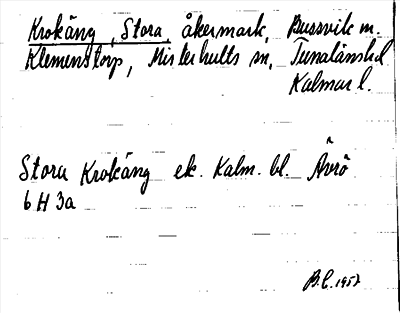 Krokäng, Stora, åkermark, Bussvik m.
Klemenstorp, Misterhults sn, Tunalänshd
Kalmar l.
Stora Krokäng ek. Kalm. bl. Ävrö
6 H 3a
B.L. 1957